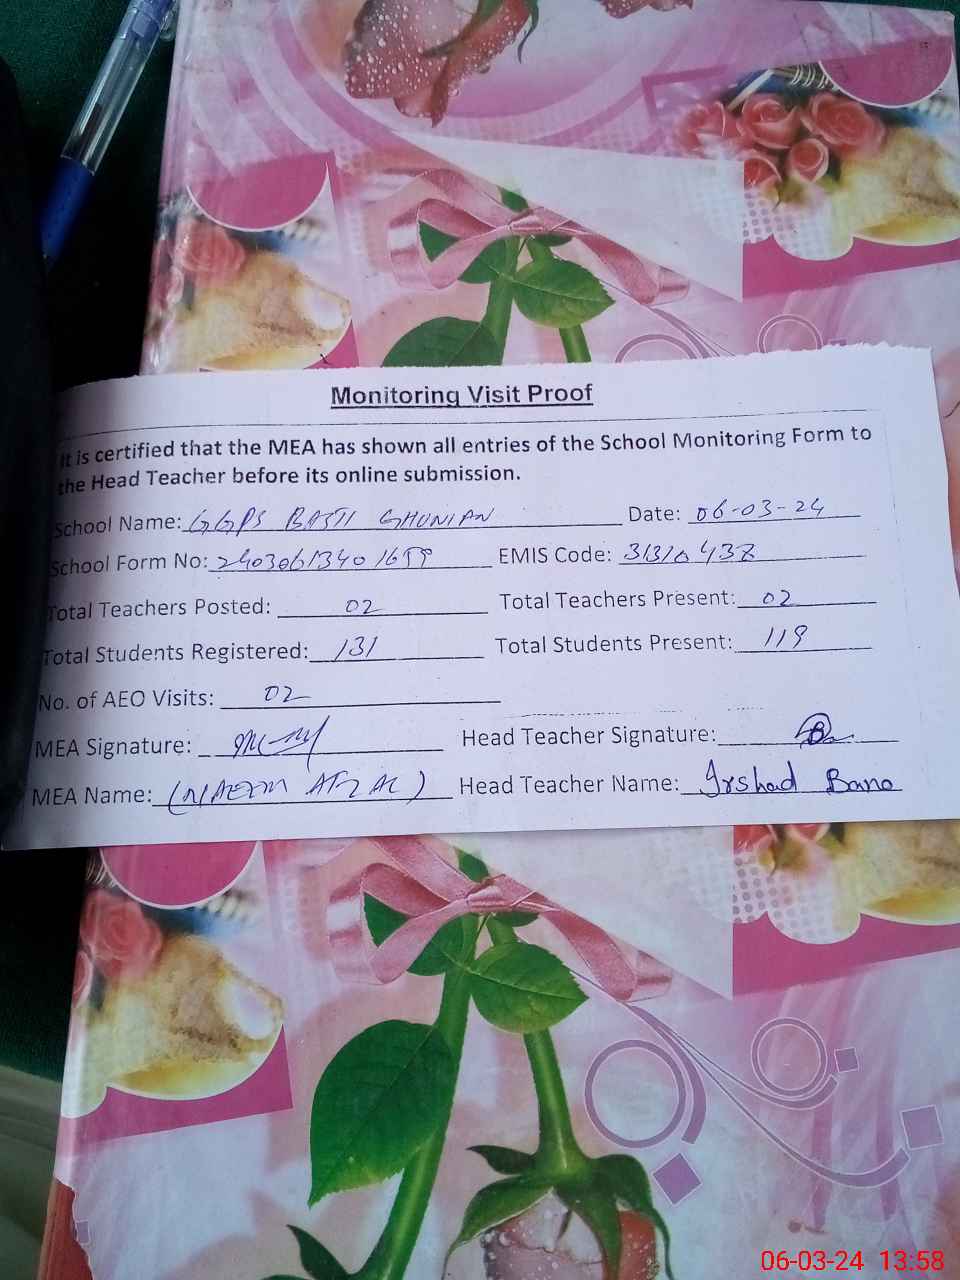 Monitoring Visit Proof
It is certified that the MEA has shown all entries of the School Monitoring Form to
the Head Teacher before its online submission.
School Name: GGPS BASTI GHUNIAN Date: 06-03-24
School Form No: EMIS Code: 31310438
Total Teachers Posted: 02 Total Teachers Present: 02
Total Students Registered: 131 Total Students Present: 119
No. of AEO Visits: 02
MEA Signature: Head Teacher Signature:
MEA Name: (NAEEM AFZAL) Head Teacher Name: Irshad Bano
06-03-24 13:58